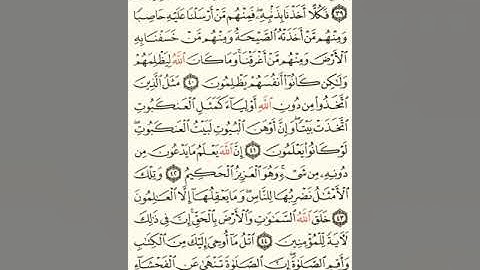 ٣٩ فَكُلًّا أَخَذْنَا بِذَنۢبِهِۦۖ فَمِنْهُم مَّنْ أَرْسَلْنَا عَلَيْهِ حَاصِبًا
وَمِنْهُم مَّنْ أَخَذَتْهُ ٱلصَّيْحَةُ وَمِنْهُم مَّنْ خَسَفْنَا بِهِ
ٱلْأَرْضَ وَمِنْهُم مَّنْ أَغْرَقْنَاۚ وَمَا كَانَ ٱللَّهُ لِيَظْلِمَهُمْ
وَلَٰكِن كَانُوٓا۟ أَنفُسَهُمْ يَظْلِمُونَ ٤٠ مَثَلُ ٱلَّذِينَ
ٱتَّخَذُوا۟ مِن دُونِ ٱللَّهِ أَوْلِيَآءَ كَمَثَلِ ٱلْعَنكَبُوتِ
ٱتَّخَذَتْ بَيْتًاۖ وَإِنَّ أَوْهَنَ ٱلْبُيُوتِ لَبَيْتُ ٱلْعَنكَبُوتِۖ
لَوْ كَانُوا۟ يَعْلَمُونَ ٤١ إِنَّ ٱللَّهَ يَعْلَمُ مَا يَدْعُونَ مِن
دُونِهِۦ مِن شَىْءٍۚ وَهُوَ ٱلْعَزِيزُ ٱلْحَكِيمُ ٤٢ وَتِلْكَ
ٱلْأَمْثَٰلُ نَضْرِبُهَا لِلنَّاسِۖ وَمَا يَعْقِلُهَآ إِلَّا ٱلْعَٰلِمُونَ
٤٣ خَلَقَ ٱللَّهُ ٱلسَّمَٰوَٰتِ وَٱلْأَرْضَ بِٱلْحَقِّۚ إِنَّ فِى ذَٰلِكَ
لَءَايَةً لِّلْمُؤْمِنِينَ ٤٤ ٱتْلُ مَآ أُوحِىَ إِلَيْكَ مِنَ ٱلْكِتَٰبِ
وَأَقِمِ ٱلصَّلَوٰةَۖ إِنَّ ٱلصَّلَوٰةَ تَنْهَىٰ عَنِ ٱلْفَحْشَآءِ